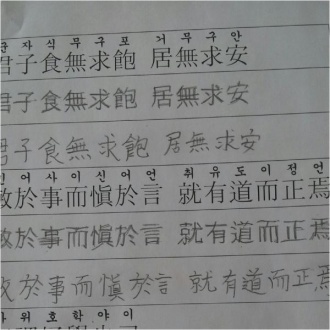 군자식무구포 거무구안
君子食無求飽 居無求安
君子食無求飽 居無求安
君子食無求飽 居無求安
민어사이신어언 취유도이정언
敏於事而愼於言 就有道而正焉
敏於事而愼於言 就有道而正焉
敏於事而愼於言 就有道而正焉
가위호학야이